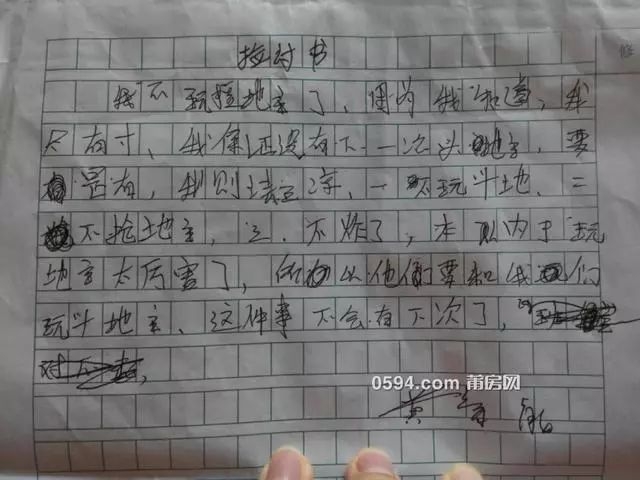 检讨书
我不玩抢地主了、因为我知道,我
只有寸、我保证没有下一次斗地主,要
是有,我则 一不玩斗地、二
不抢地主,三.不炸了,本以内于玩
地主太厉害了,所以他们要和我们
玩斗地主、这件事不会有下次了,
0594.com 莆房网
黄